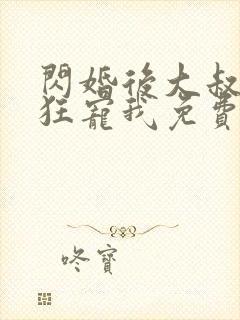 閃婚後大叔
狂寵我免費
咚寶